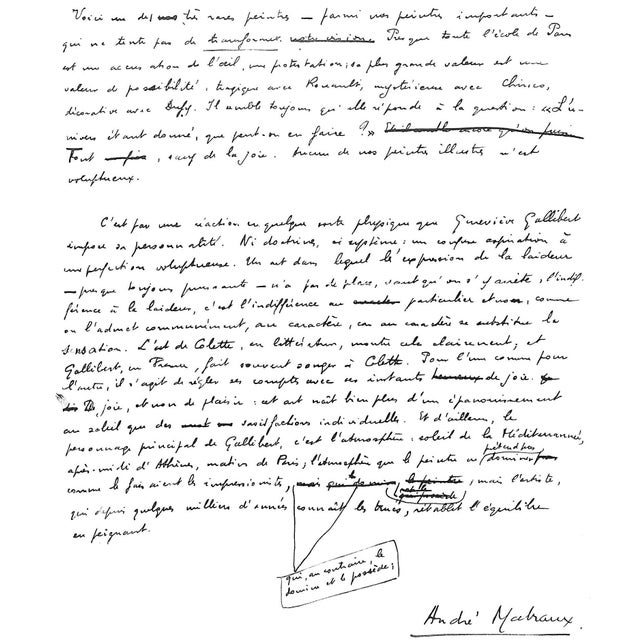 Voici un des ~~nos~~ très rares peintres – parmi nos peintres importants –
qui ne tente pas de transformer ~~notre vision~~. Presque toute l'école de Paris
est une accusation de l'œil, une protestation ; sa plus grande valeur est une
valeur de possibilité, tragique avec Rouault, mystérieuse avec Chirico,
décorative avec Dufy. Il semble toujours qu'elle réponde à la question : « L'u-
nivers étant donné, que peut-on en faire ? »
Tout, sauf de la joie. Aucun de nos peintres illustres n'est
voluptueux.
C'est par une réaction en quelque sorte physique que Geneviève Gallibert
impose sa personnalité. Ni doctrine, ni système : une confuse aspiration à
une perfection voluptueuse. Un art dans lequel l'expression de la laideur
– presque toujours puissante – n'a pas de place, sauf qu'on s'y arrête, l'indif-
férence à la laideur, c'est l'indifférence au particulier et non, comme
on l'admet communément, au caractère, car au caractère se substitue la
sensation. L'art de Colette, en littérature, montre cela clairement ; et
Gallibert, en France, fait souvent songer à Colette. Pour l'une comme pour
l'autre, il s'agit de régler ses comptes avec ses instants ~~heureux~~ de joie.
De joie, et non de plaisir : cet art naît bien plus d'un épanouissement
au soleil que des satisfactions individuelles. Et d'ailleurs, le
personnage principal de Gallibert, c'est l'atmosphère : soleil de la Méditerranée,
après-midi d'Athènes, matins de Paris ; l'atmosphère que le peintre ne prétend pas dominer
comme le faisaient les impressionnistes, mais l'artiste,
qui depuis quelques milliers d'années connaît les trucs, rétablit l'équilibre
en peignant.
qui, au contraire, le
domine et le possède ;
André Malraux.